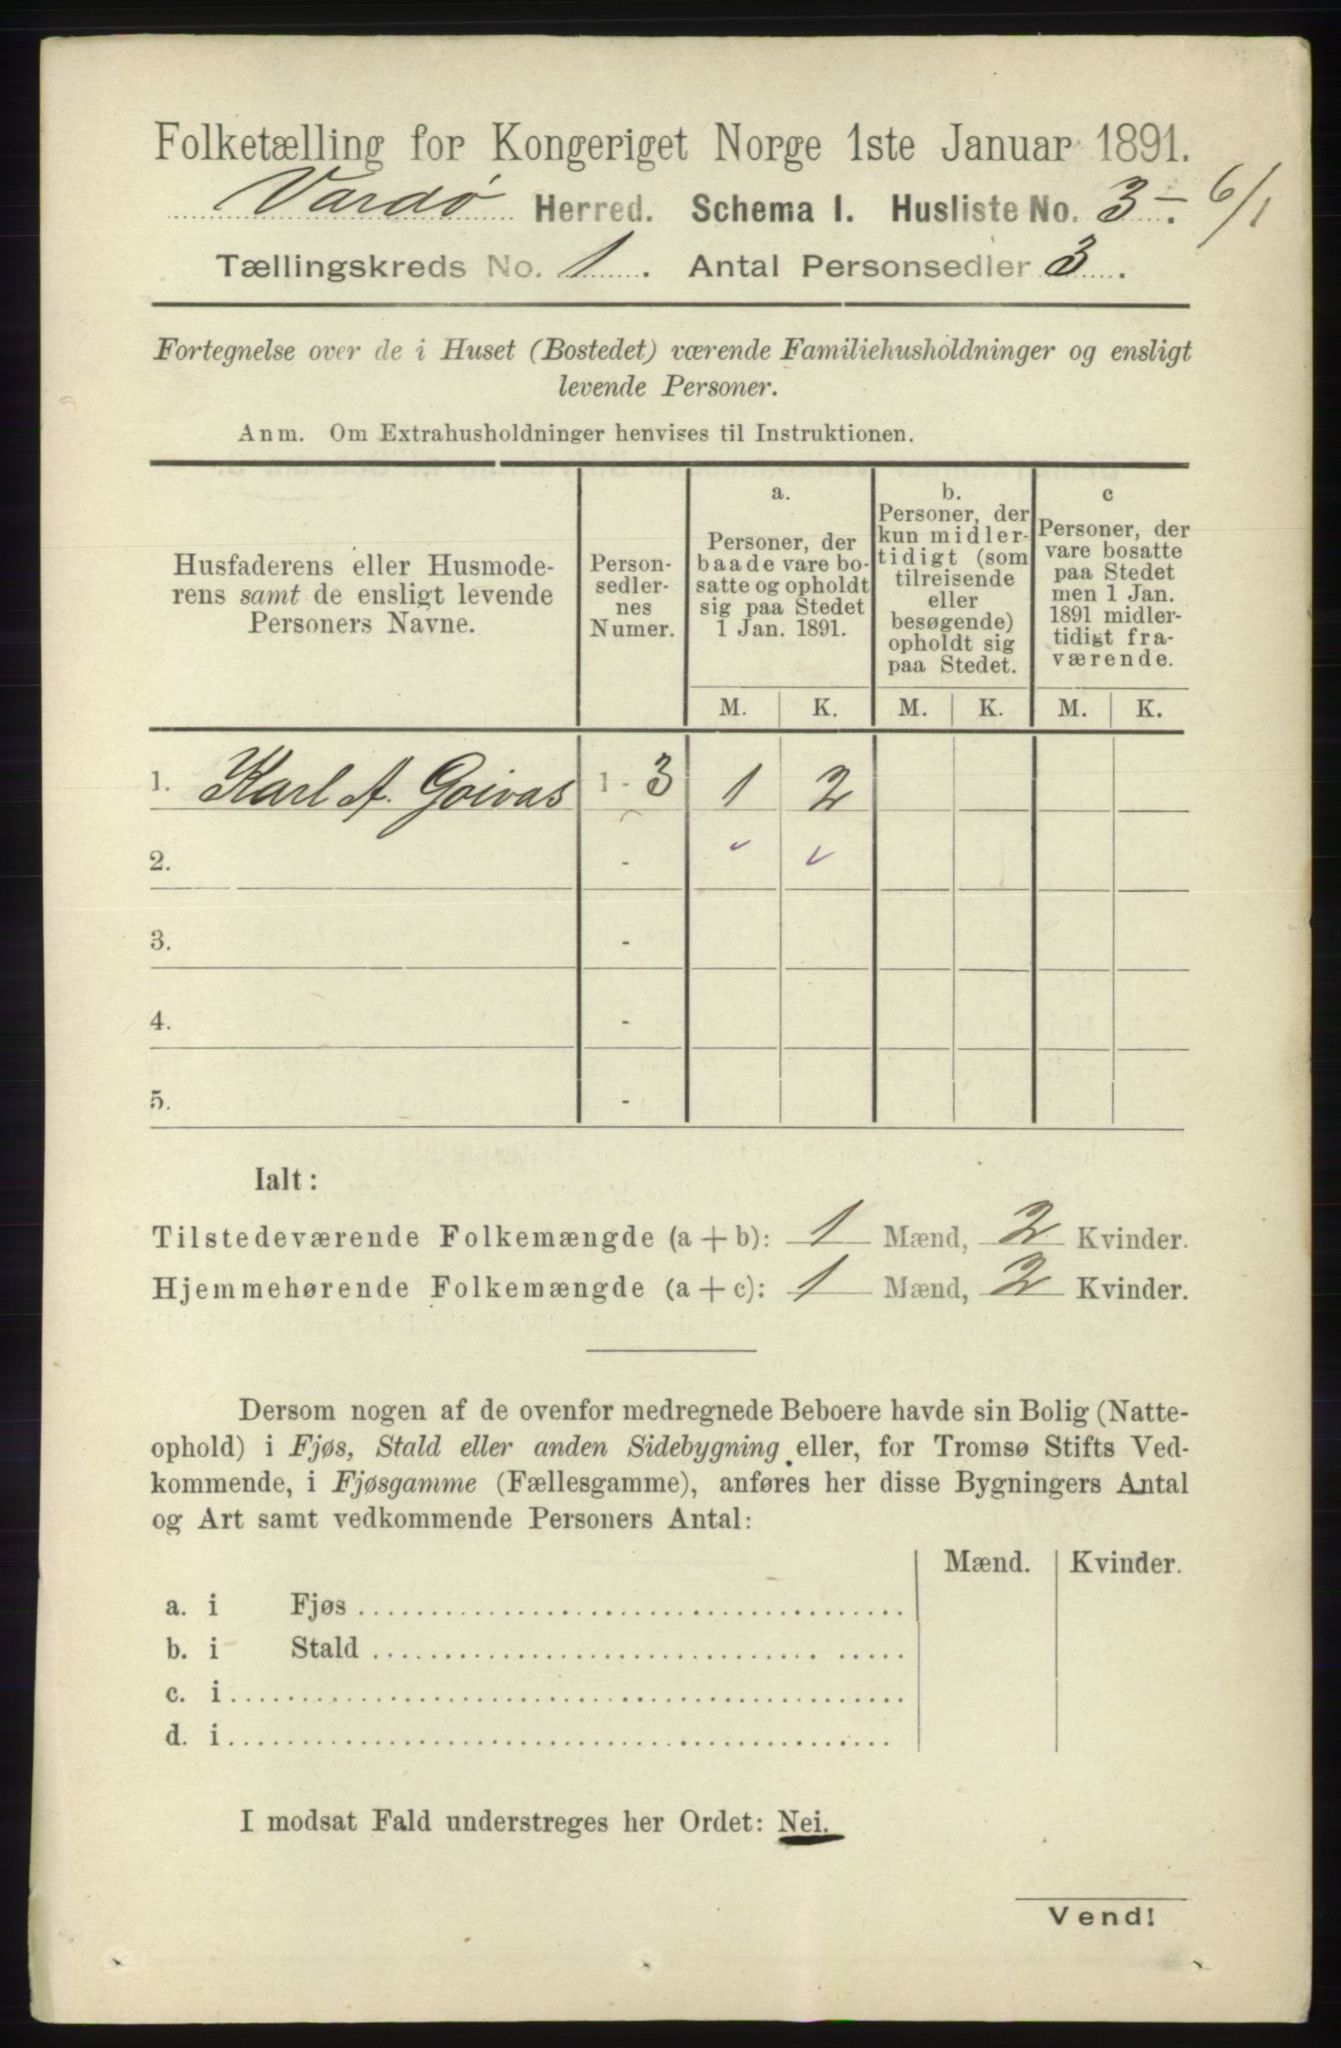 Folketælling for Kongeriget Norge 1ste Januar 1891.
Vardø Herred. Schema I. Husliste No. 3 -. 6/1
Tællingskreds No. 1. Antal Personsedler 3.
Fortegnelse over de i Huset (Bostedet) værende Familiehusholdninger og ensligt
levende Personer.
Anm. Om Extrahusholdninger henvises til Instruktionen.
Husfaderens eller Husmode-
rens samt de ensligt levende
Personers Navne.
Person-
sedler-
nes
Numer.
a.
Personer, der
baade vare bo-
satte og opholdt
sig paa Stedet
1 Jan. 1891.
b.
Personer, der
kun midler-
tidigt (som
tilreisende
eller
besøgende)
opholdt sig
paa Stedet.
c
Personer, der
vare bosatte
paa Stedet
men 1 Jan.
1891 midler-
tidigt fra-
værende.
M. K. M. K. M. K.
1. Karl A. Goivas 1 - 3 1 2
2. -
3. -
4. -
5. -
Ialt:
Tilstedeværende Folkemængde (a + b): 1 Mænd, 2 Kvinder.
Hjemmehørende Folkemængde (a + c): 1 Mænd, 2 Kvinder.
Dersom nogen af de ovenfor medregnede Beboere havde sin Bolig (Natte-
ophold) i Fjøs, Stald eller anden Sidebygning eller, for Tromsø Stifts Ved-
kommende, i Fjøsgamme (Fællesgamme), anføres her disse Bygningers Antal
og Art samt vedkommende Personers Antal:
Mænd. Kvinder.
a. i Fjøs
b. i Stald
c. i
d. i
I modsat Fald understreges her Ordet: Nei.
Vend!